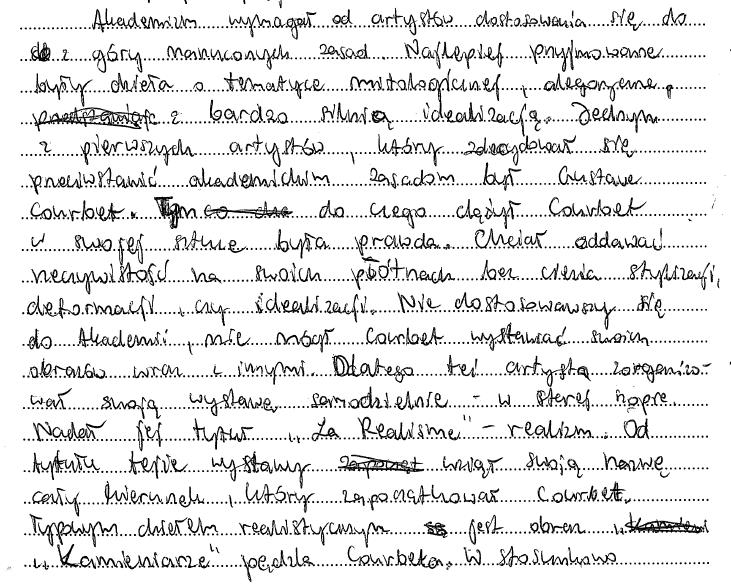 Akademizm wymagał od artystów dostosowania się do
z góry narzuconych zasad. Najlepiej przyjmowane
były dzieła o tematyce mitologicznej, alegoryczne,
z bardzo silnią idealizacją. Jednym
z pierwszych artystów, który zdecydował się
przeciwstawić akademickim zasadom był Gustave
Courbet. Tym do czego dążył Courbet
w swojej sztuce była prawda. Chciał oddawać
rzeczywistość na swoich płótnach bez cienia stylizacji,
deformacji, czy idealizacji. Nie dostosowawszy się
do Akademii, nie mógł Courbet wystawiać swoich
obrazów wraz z innymi. Dlatego też artysta zorganizo-
wał swoją wystawę samodzielnie - w sterej
Nadał jej tytuł "La Realisme" - realizm. Od
tytułu tejże wystawy wziął swoją nazwę
cały kierunek, który zapoczątkował Courbet.
Typowym dziełem realistycznym jest obraz
"Kamieniarze" pędzla Courbeta. W stosunkowo